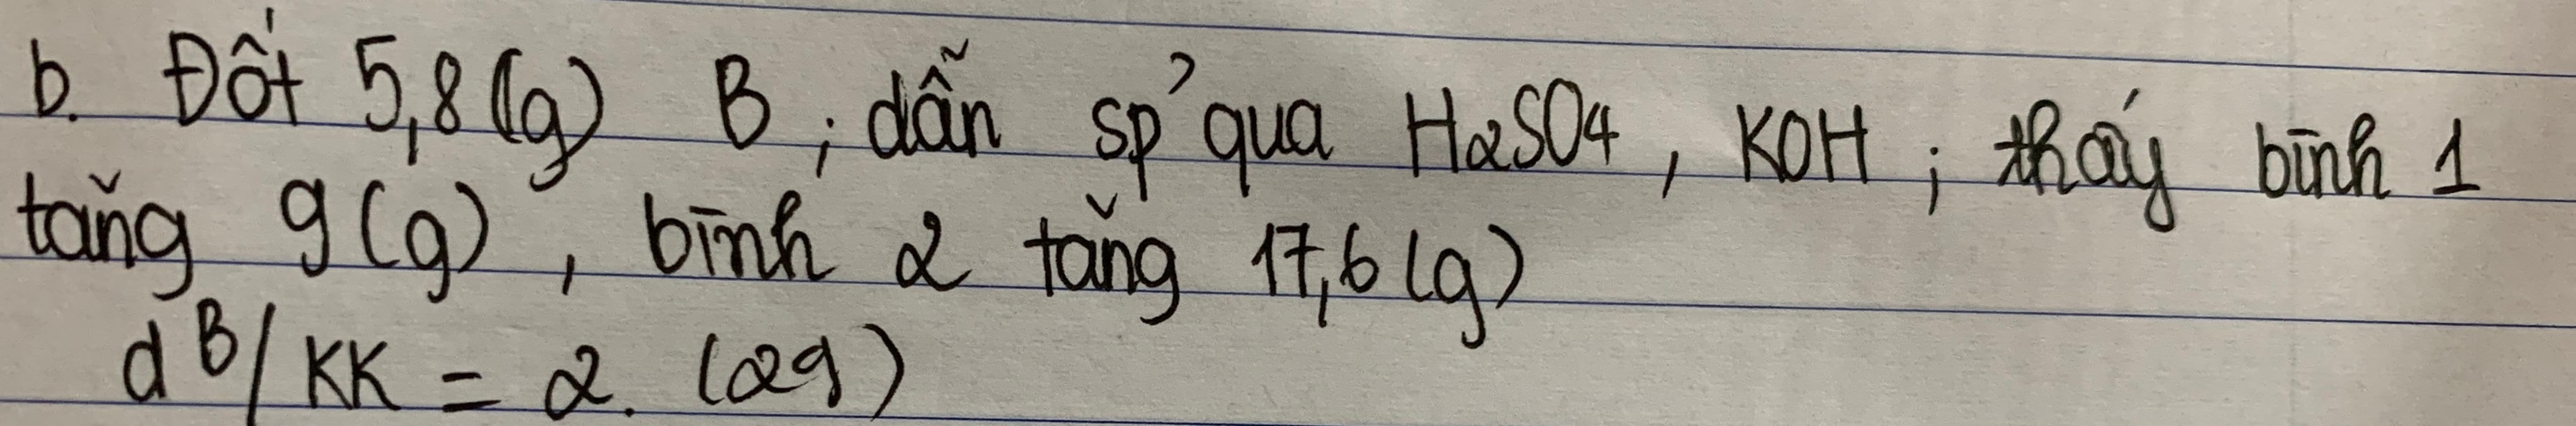 b. Đốt 5,8(g) B ; dẫn sp' qua H2SO4, KOH ; thấy bình 1
tăng 9(g), bình 2 tăng 17,6(g)
d B/KK = 2. (29)